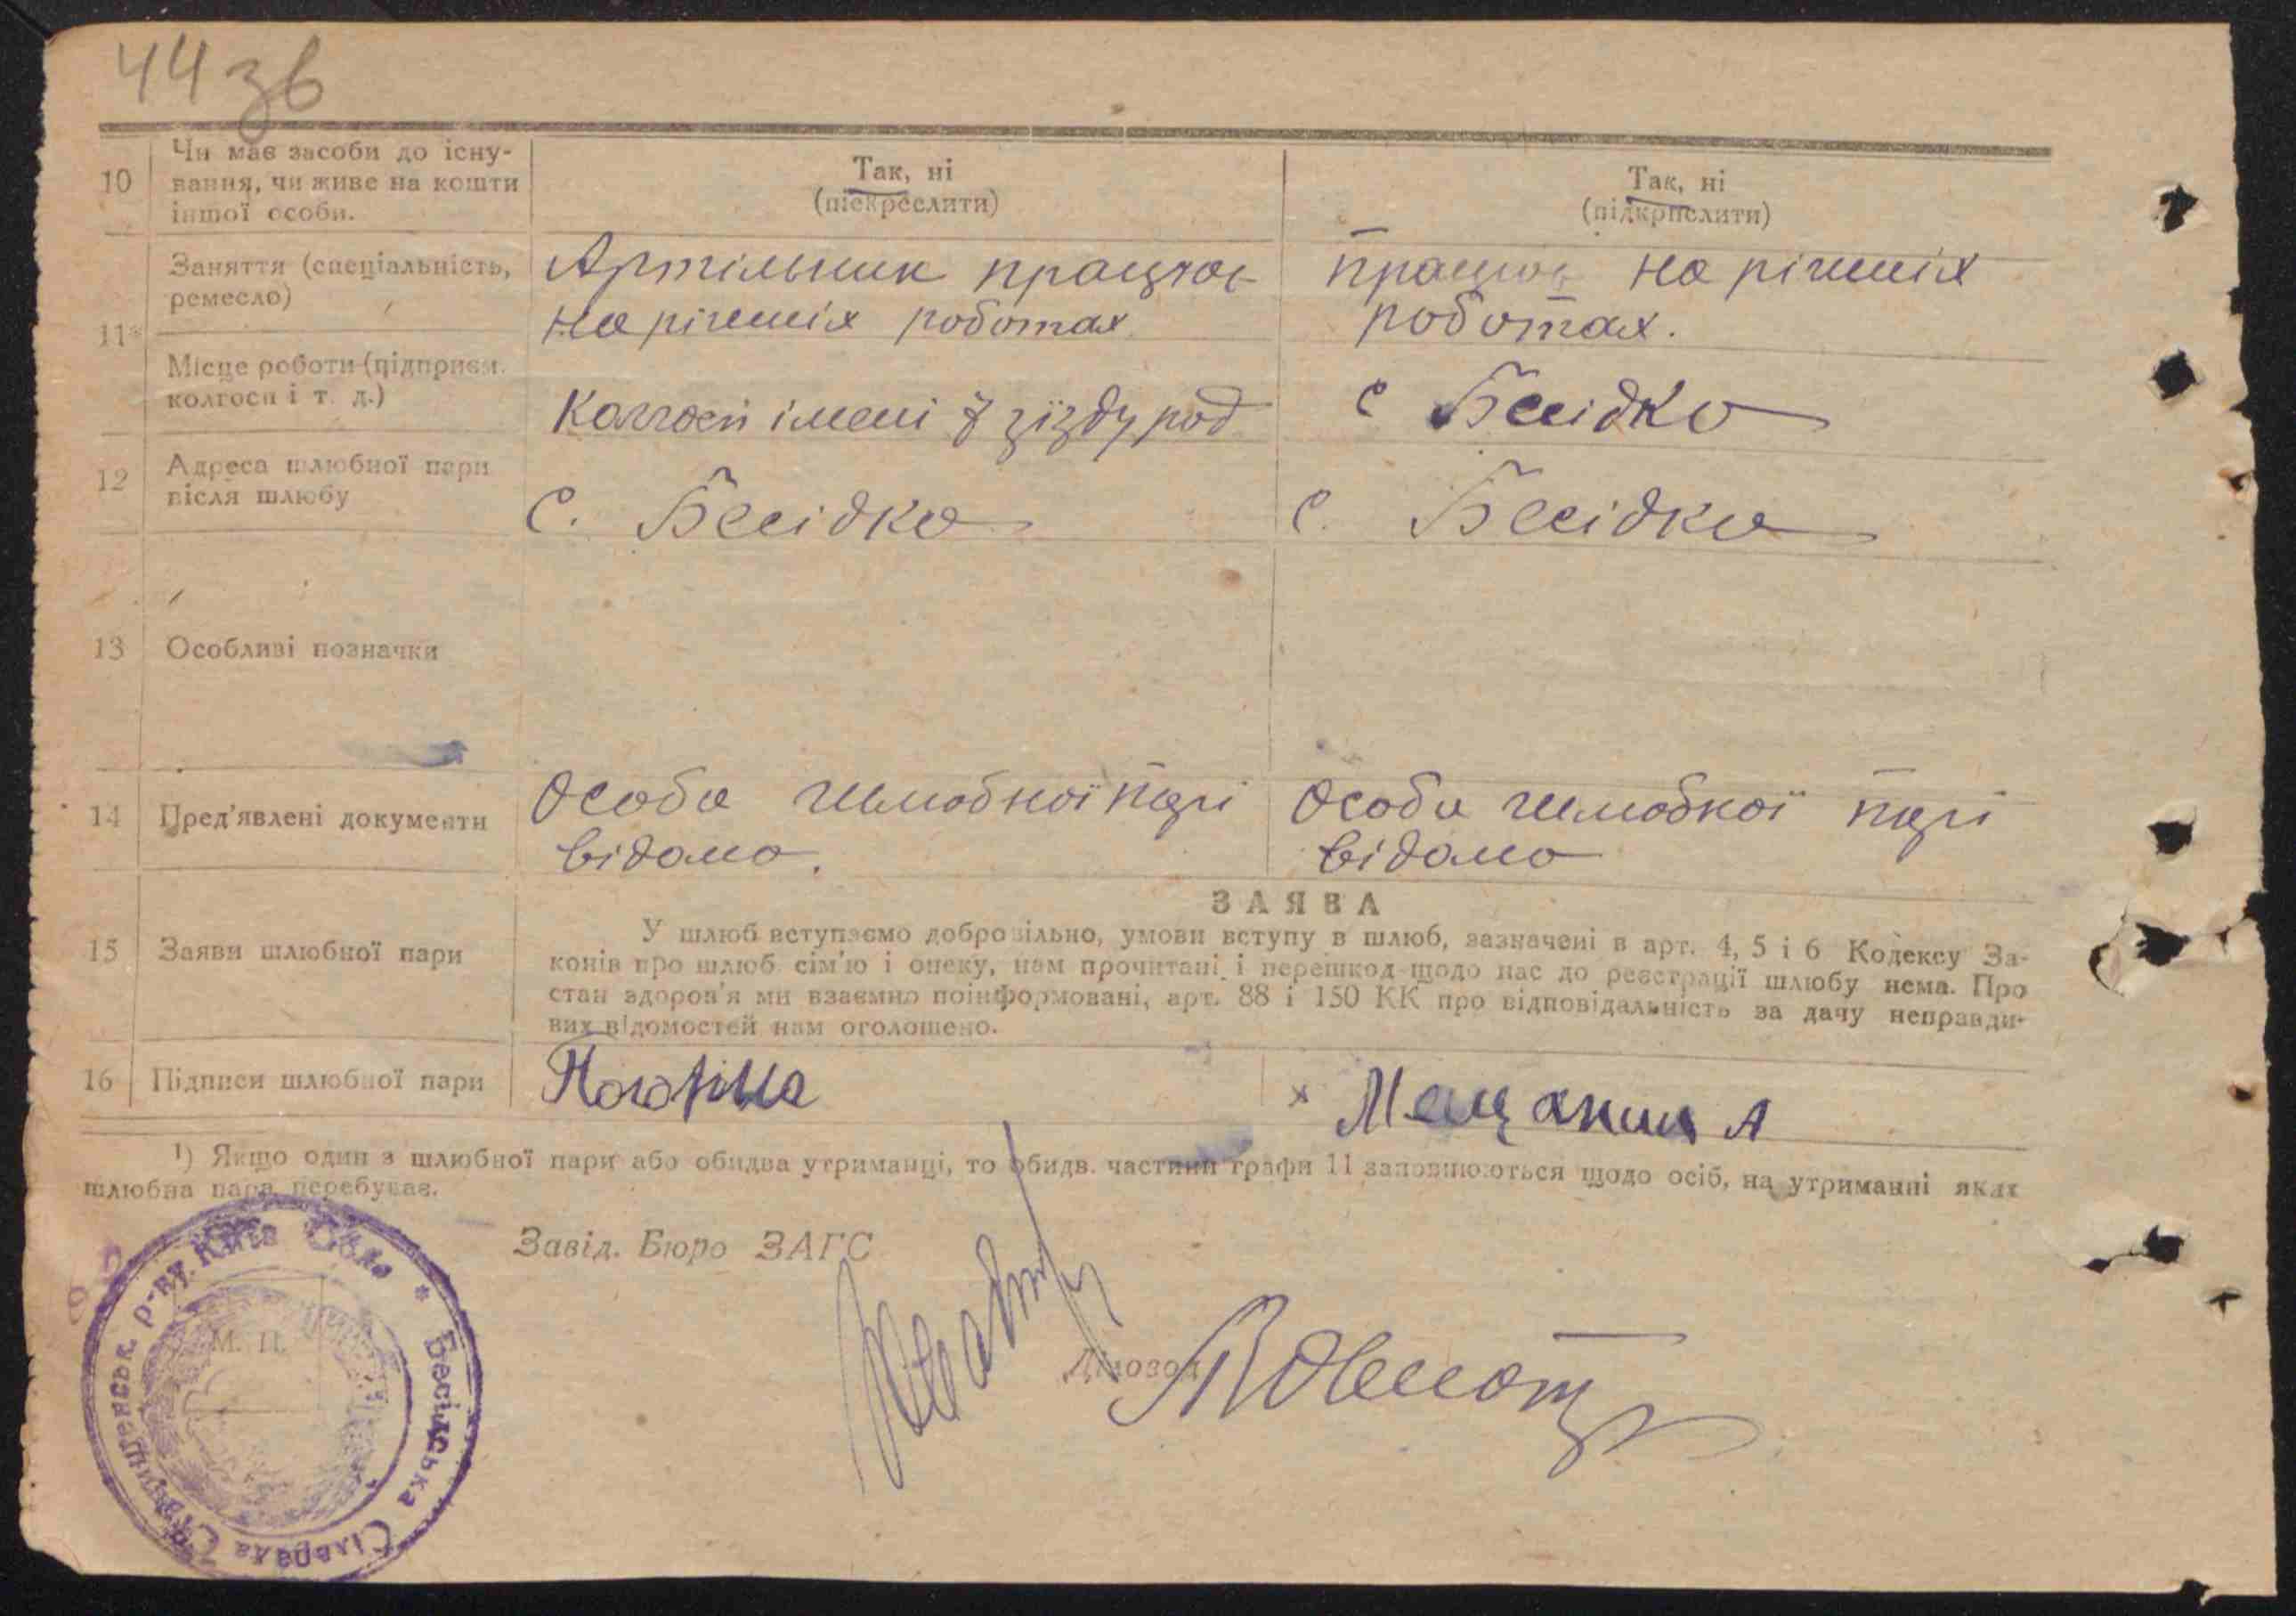 44 зв
10
Чи має засоби до існу-
вання, чи живе на кошти
іншої особи.
Так, ні
(підкреслити)
Так, ні
(підкрислити)
11
Заняття (спеціальність,
ремесло)
Артільник працює
на різних роботах
працює на різних
роботах.
Місце роботи (підприєм.
колгосп і т. д.)
Колгосп імені 7 зїзду рад
с Бесідка
12
Адреса шлюбної пари
після шлюбу
с. Бесідка
с. Бесідка
13
Особливі позначки
14
Пред'явлені документи
Особа шлюбної парі
відома.
Особа шлюбної парі
відома
15
Заяви шлюбної пари
ЗАЯВА
У шлюб вступаємо добровільно, умови вступу в шлюб, зазначені в арт. 4, 5 і 6 Кодексу За-
конів про шлюб сім'ю і опеку, нам прочитані і перешкод щодо нас до реєстрації шлюбу нема. Про
стан здоров'я ми взаємно поінформовані, арт. 88 і 150 КК про відповідальність за дачу неправди-
вих відомостей нам оголошено.
16
Підписи шлюбної пари
х Мещанин А
¹) Якщо один з шлюбної пари або обидва утриманці, то обидв. частини графи 11 заповнюються щодо осіб, на утриманні яких
шлюбна пара перебуває.
Завід. Бюро ЗАГС
М. П.
Діловод
Бесідська Сільрада Ставищенськ. р-ну, Київ Обл.